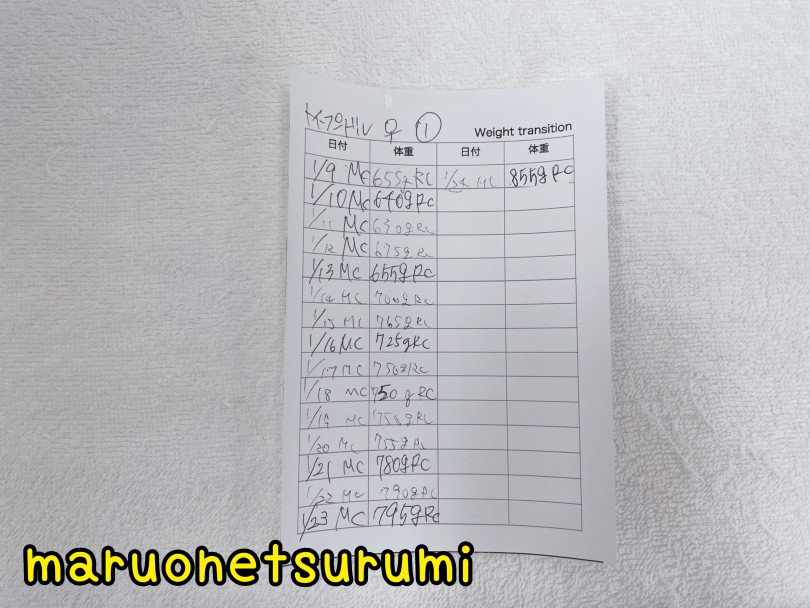 ♀ ① Weight transition
日付 体重 日付 体重
1/9 MC 655g RC 1/24 MC 855g RC
1/10 MC 640g RC
1/11 MC 630g RC
1/12 MC 675g RC
1/13 MC 655g RC
1/14 MC 700g RC
1/15 MC 765g RC
1/16 MC 725g RC
1/17 MC 750g RC
1/18 MC 750g RC
1/19 MC 755g RC
1/20 MC 755g RC
1/21 MC 780g RC
1/22 MC 790g RC
1/23 MC 795g RC
maruohetsurumi